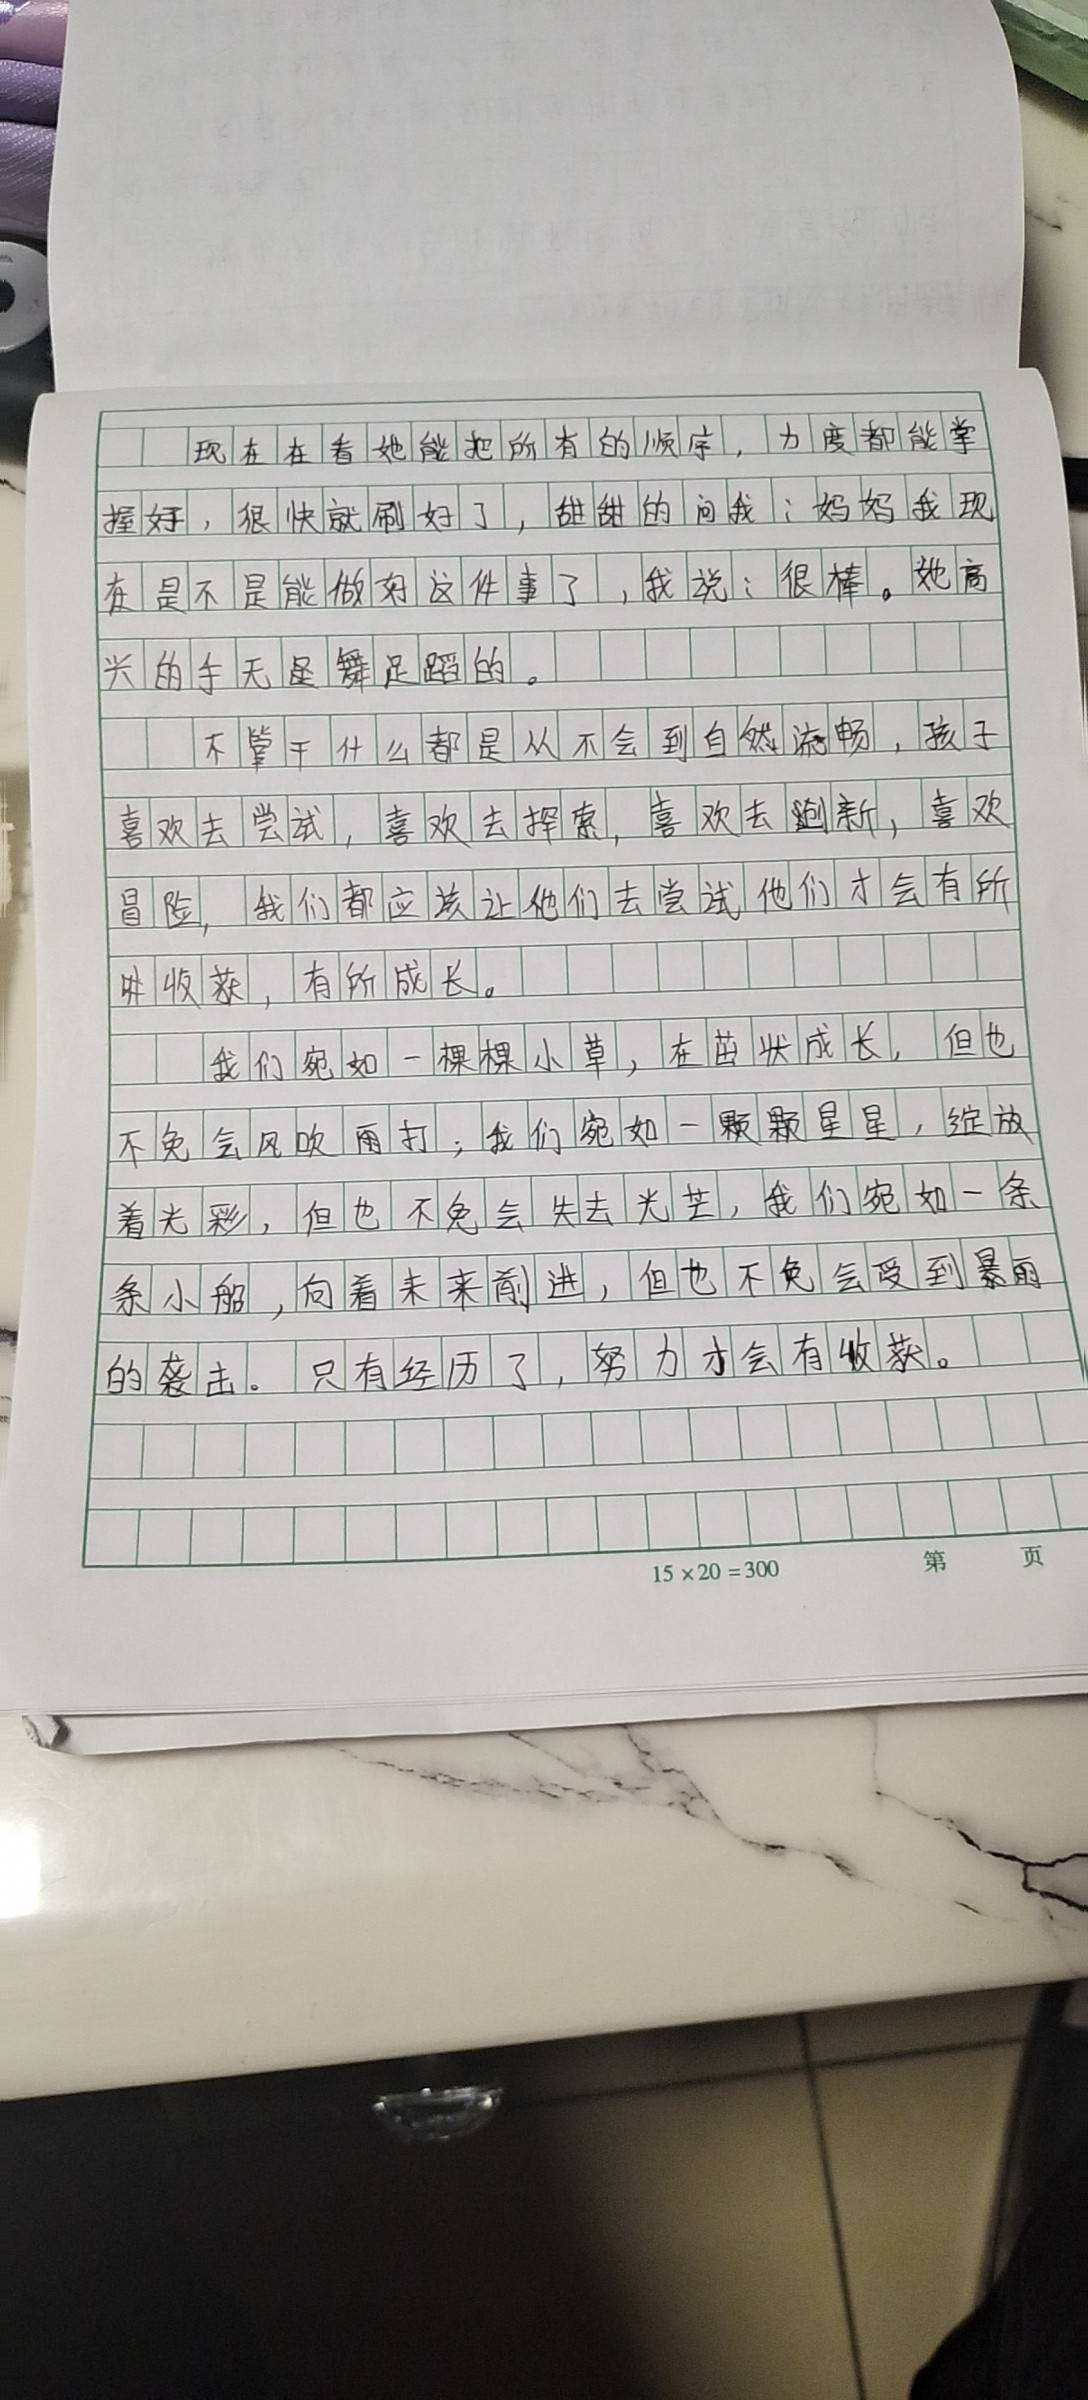 现在在看她能把所有的顺序，力度都能掌
握好，很快就刷好了，甜甜的问我：妈妈我现
在是不是能做好这件事了，我说：很棒。她高
兴的手无足舞足蹈的。
不管干什么都是从不会到自然流畅，孩子
喜欢去尝试，喜欢去探索，喜欢去创新，喜欢
冒险，我们都应该让他们去尝试他们才会有所
收获，有所成长。
我们宛如一棵棵小草，在茁状成长，但也
不免会风吹雨打；我们宛如一颗颗星星，绽放
着光彩，但也不免会失去光芒，我们宛如一条
条小船，向着未来前进，但也不免会受到暴雨
的袭击。只有经历了，努力才会有收获。
15×20=300
第 页